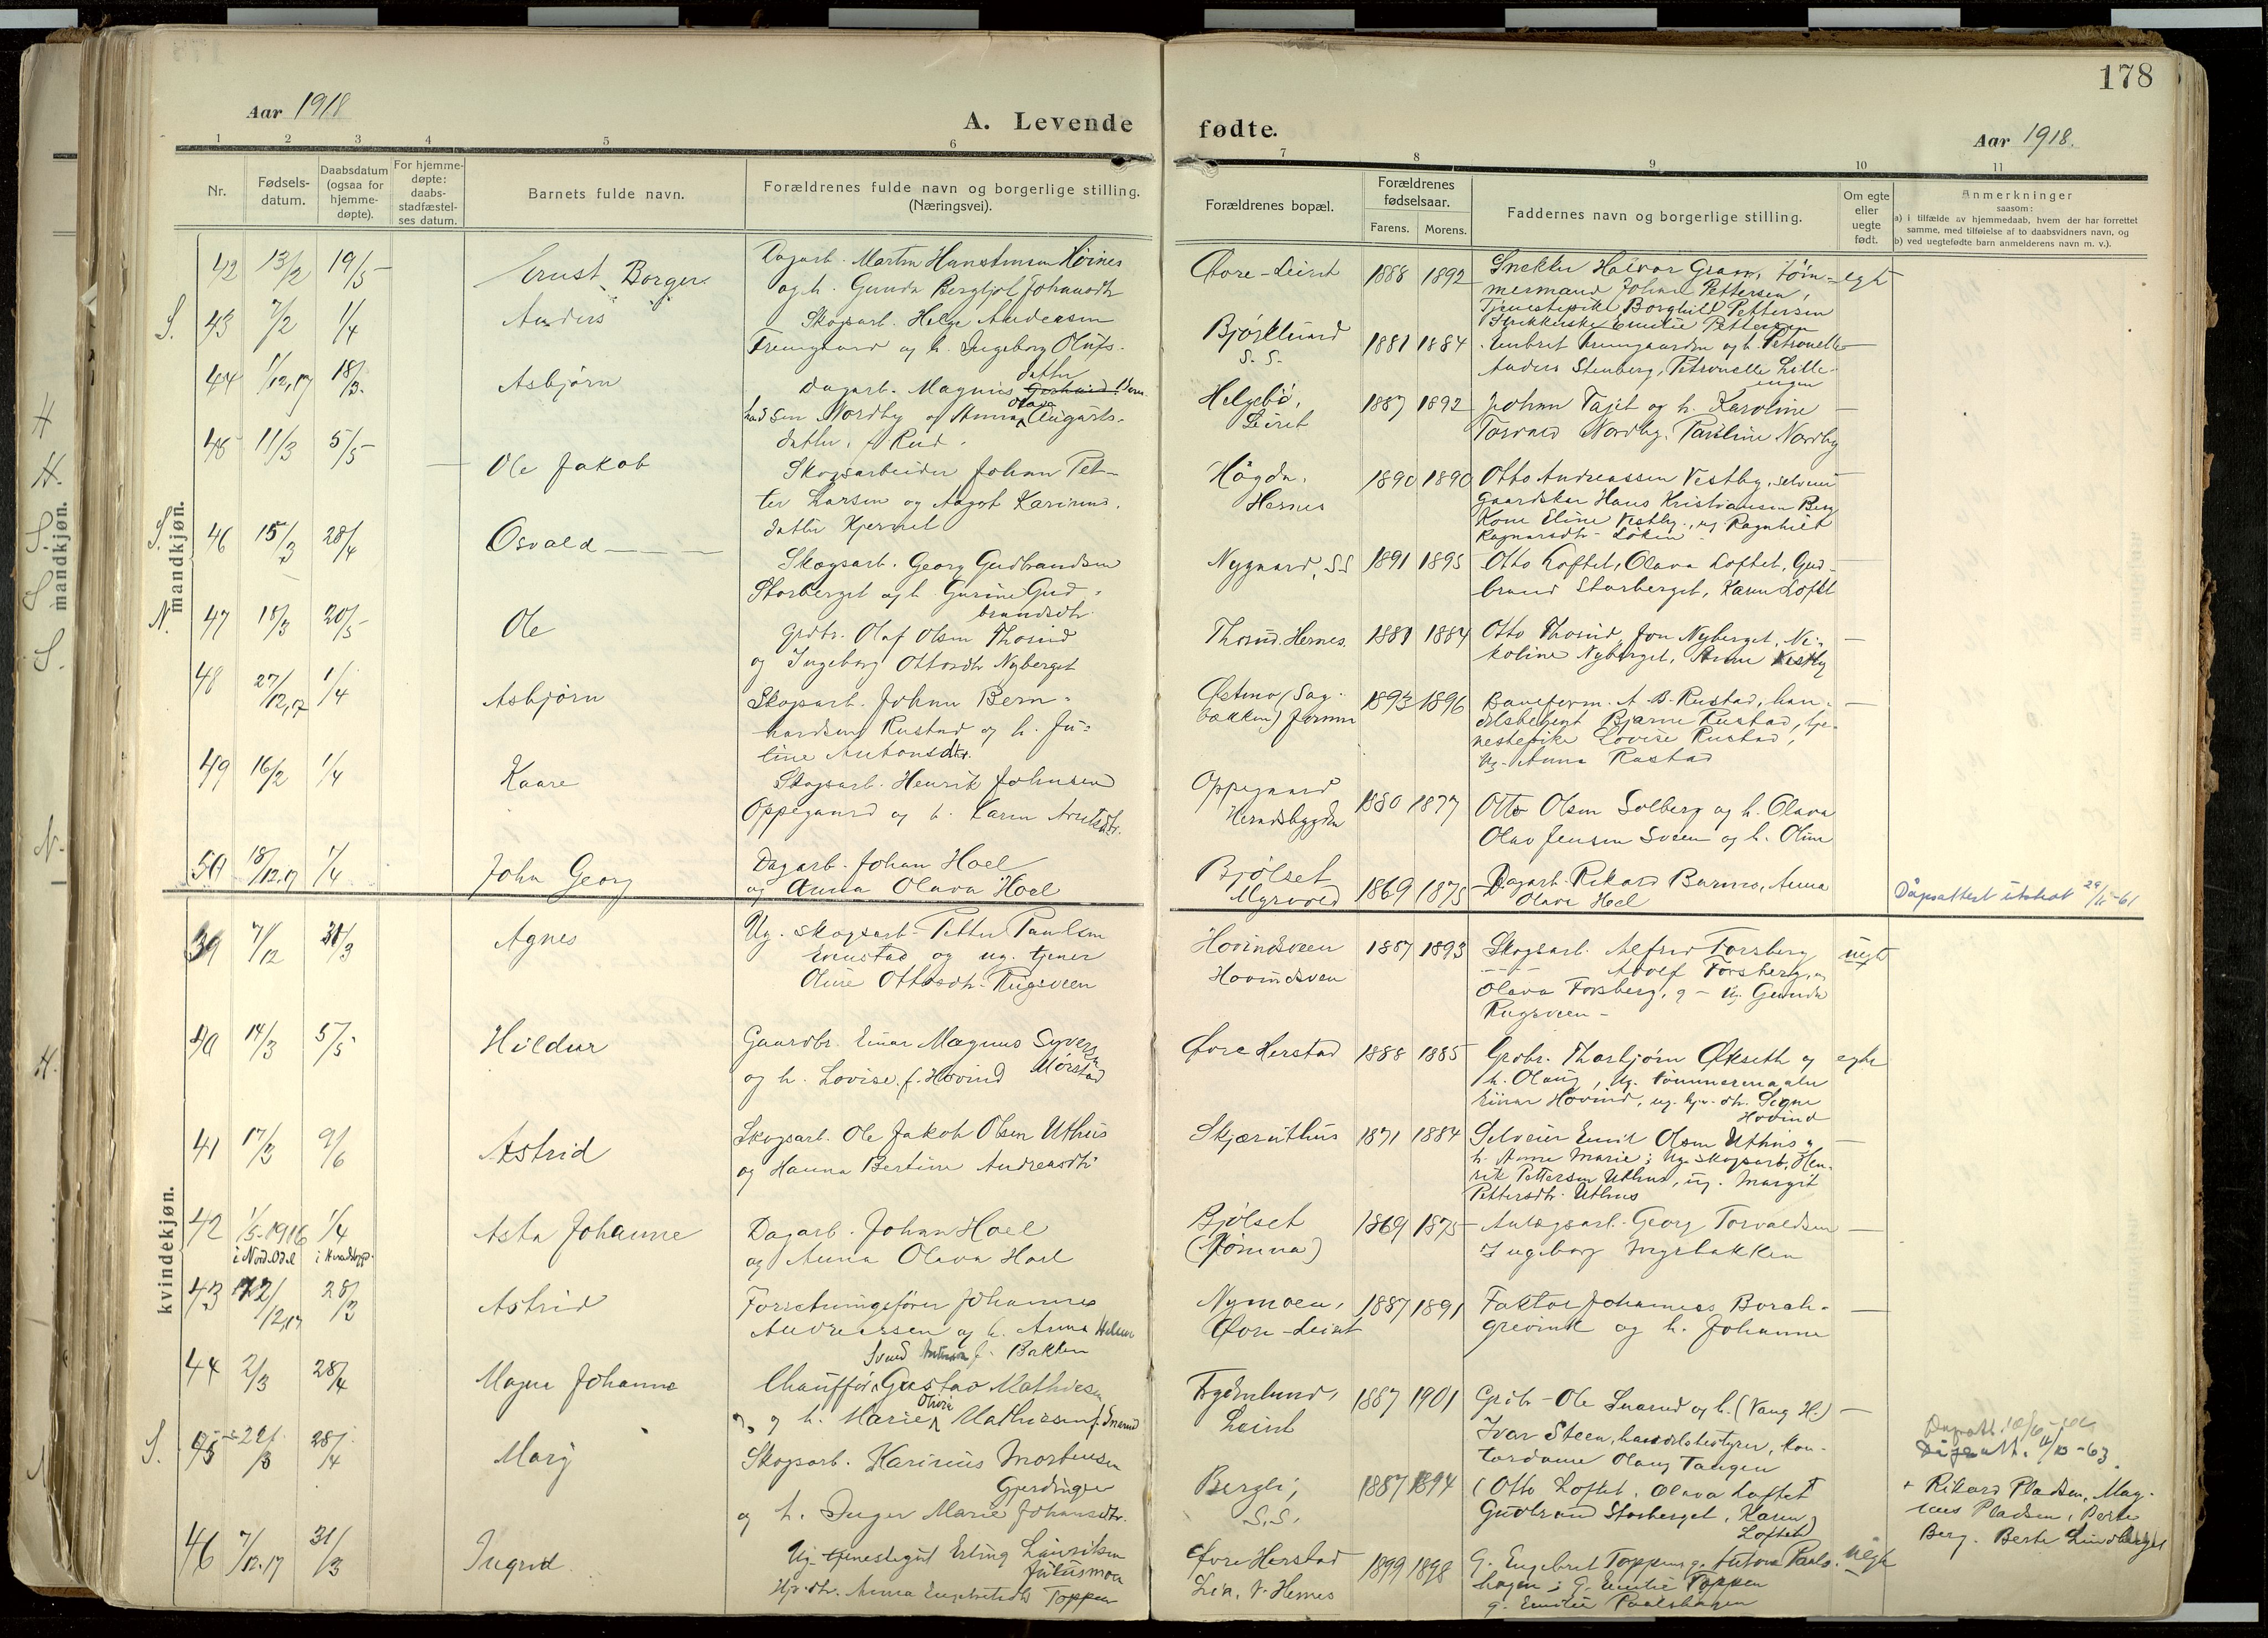 178
Aar 1918
A. Levende fødte.
Aar 1918.
1 2 3 4 5 6 7 8 9 10 11
Nr.
Fødselsdatum.
Daabsdatum (ogsaa for hjemmedøpte).
For hjemmedøpte: daabsstadfæstelses datum.
Barnets fulde navn.
Forældrenes fulde navn og borgerlige stilling. (Næringsvei).
Forældrenes bopæl.
Forældrenes fødselsaar.
Farens. Morens.
Faddernes navn og borgerlige stilling.
Om egte eller uegte født.
Anmerkninger
saasom:
a) i tilfælde av hjemmedaab, hvem der har forrettet samme, med tilføielse af to daabsvidners navn, og
b) ved uegtefødte barn anmelderens navn m. v.).
mandkjøn.
42 13/2 19/5 Ernst Borger.
Dagarb. Martin Høines
og h. Gunda Bergljot Johansdtr
Øvre-Leiret 1888 1892
Snekker Halvor Gram, tøm-
mermand Johan Pettersen,
Tjenestepike Borghild Pettersen
Emilie Pettersen
egte
S. 43 7/2 1/4 Anders
Skogsarb. Helge Andersen
og h. Ingeborg Olufs-
datter
Bjørklund
S. S.
1881 1884
og h. Petronelle
Anders Stenberg, Petronelle Lille-
engen
44 1/12,17 18/3. Asbjørn
Dagarb. Magnus
sen Nordby og Anna Olava Augusts-
datter, f. Rud.
Helgebö,
Leiret
1887 1892
Johan Tajet og h. Karoline
Torvald Nordby, Pauline Nordby
45 11/3 5/5 Ole Jakob
Skogsarbeider Johan Pet-
ter Larsen og Aagot Karinus-
datter Kjernet
Högda,
Hernes
1890 1890
Otto Andreassen Vestby, selveier
Gaardsbar Hans Kristiansen Berg
Kone Eline Vestby, og Ragnhild
Ragnarsdtr Löken
S. 46 15/3 28/4 Osvald
Skogsarb. Georg Gudbrandsen
Storberget og h. Gurine Gud-
brandsdtr.
Nygaard, S.S 1891 1895
Otto Loftet, Olava Loftet, Gud-
brand Storberget, Karen Loftet
N. 47 18/3 20/5 Ole
Grdbr. Olaf Olsen Thorud
og Ingeborg Ottosdtr Nyberget
Thorud. Hernes. 1881 1884
Otto Thorud, Jon Nyberget, Ni-
koline Nyberget, Anne Vestby
48 27/12,17 1/4 Asbjørn
Skogsarb. Johan Bern-
hardsen Rustad og h. Ju-
line Antonsdtr.
Østmo (Sag-
bakken) Jømna
1893 1896
Baneform. A. B. Rustad, han-
delsbetjent Bjarne Rustad, tje-
nestepike Lovise Rustad,
Ug. Anna Rustad
49 16/2 1/4 Kaare
Skogsarb. Henrik Johnsen
Oppegaard og h. Karen
Oppegaard
Heradsbygden
1880 1877
Otto Olsen Solberg og h. Olava
Olav Jensen Sveen og h. Oline
50 18/12.17 1/4 John Georg
Dagarb. Johan Hoel
og Anna Olava Hoel
Bjølset
Myrvold
1869 1875
Dagarb. Rikard Barmo, Anna
Olava Hoel
Dåpsattest utstedt 29/11-61
kvindekjøn.
39 7/12 31/3 Agnes
Ug. skogsarb. Petter Paulsen
Evenstad og ug. tjener
Oline Ottosdtr. Rugsveen
Hovindsveen
Hovindsveen
1887 1893
Skogsarb. Alfred Forsberg
Adolf Forsberg,
Olava Forsberg, g - Ug. Gunda
Rugsveen -
uegt
40 14/3 5/5 Hildur
Gaardbr. Einar Magnus Syvers
Mørstad
og h. Lovise f. Hovind
Øvre Herstad 1888 1885
Grdbr. Thorbjørn Økseth og
h. Olaug, ug. tømmermaaler
Einar Hovind, ug. hjv. dtr. Signe
Hovind
egte
41 17/3 9/6 Astrid
Skogsarb. Ole Jakob Olsen Uthus
og Hanna Bertine Andreasdtr
Skjæruthus 1871 1884
Selveier Emil Olsen Uthus og
h. Anne Marie; Ug. skogsarb. Hen-
rik Pettersen Uthus, ug. Margit
Pettersdtr. Uthus
42 1/5-1916 1/4 Asta Johanne
i Nord.Odal
Dagarb. Johan Hoel
og Anna Olava Hoel
Bjølset
(Jømna)
1869 1875
Anlægsarb. Georg Torvaldsen
Ingeborg Myrbakken
43 12/12,17 28/3 Astrid
Forretningsfører Johannes
Andreassen og h. Anna Helene
f. Bakken
Nymoen,
Øvre-Leiret
1887 1891
Faktor Johannes Borch-
grevink og h. Johanne
44 2/3 28/4 Magna Johanne
Chauffør Gustav Mathiesen
og h. Marie Olivie Mathiesen f. Snarud
Fryenlund,
Leiret
1887 1901
Grdbr. Ole Snarud og h. (Vang H.)
Ivar Steen, handelsbestyrer, Kon-
tordame Olaug Tangen
S. 45 22/3 28/4 Mary
Skogsarb. Karinius Mortensen
Gjerdingen
og h. Inger Marie Johansdtr.
Bergli,
S.S.
1887 1894
Otto Loftet, Olava Loftet
Gudbrand Storberget, Karen
Loftet
Dåpsatt. 11/10-63.
+ Rikard Pladsen, Mag-
nus Pladsen, Berte
Berg. Berte Lindberget
46 7/12.17 31/3 Ingrid
Ug. tjenestegut Erling Lauritsen
Julusmoen
Hjv. dtr. Anna Engebretsdtr Toppen
Øvre Herstad
Lia, V. Hernes
1899 1898
G. Engebret Toppen, g. Anton Paals-
hagen; G. Emilie Toppen
g. Emilie Paalshagen
uegte